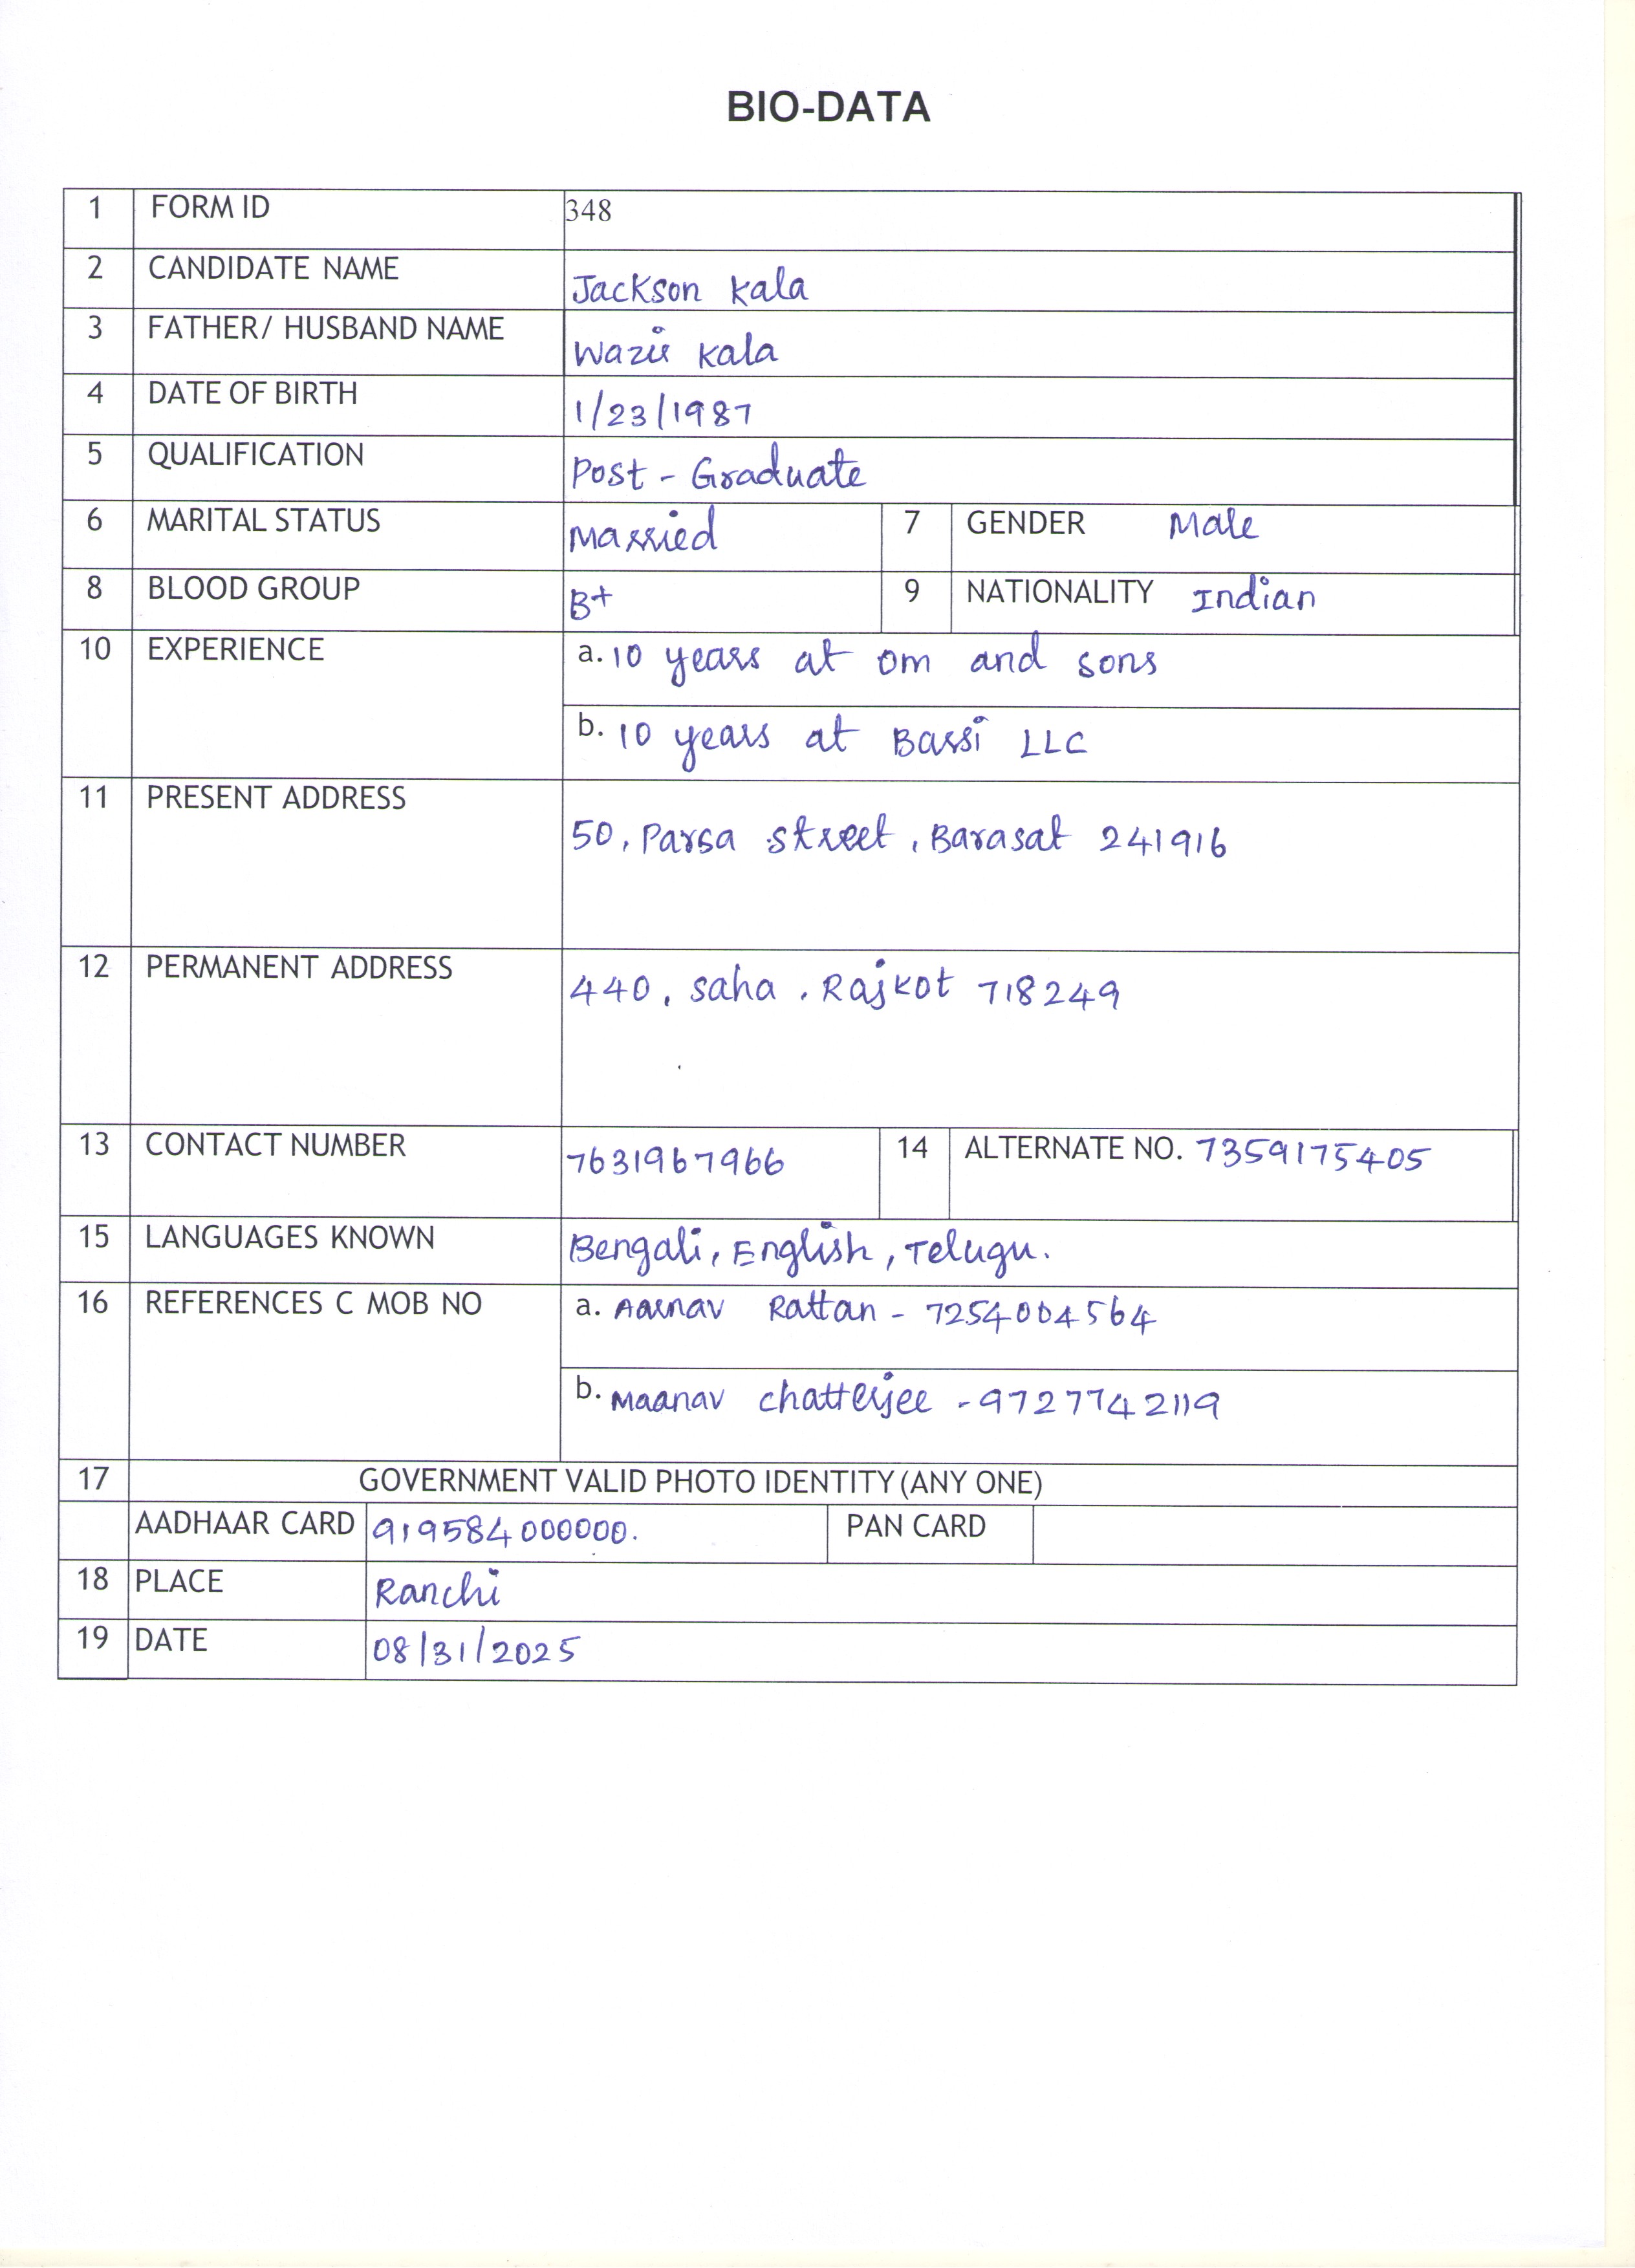 BIO-DATA
1 FORM ID 348
2 CANDIDATE NAME Jackson Kala
3 FATHER/ HUSBAND NAME Wazir Kala
4 DATE OF BIRTH 1/23/1987
5 QUALIFICATION Post - Graduate
6 MARITAL STATUS Married 7 GENDER Male
8 BLOOD GROUP B+ 9 NATIONALITY Indian
10 EXPERIENCE a. 10 years at Om and sons
b. 10 years at Bassi LLC
11 PRESENT ADDRESS
50, Parsa street, Barasat 241916
12 PERMANENT ADDRESS 440, Saha, Rajkot 718249
13 CONTACT NUMBER 7631967966 14 ALTERNATE NO. 7359175405
15 LANGUAGES KNOWN Bengali, English, Telugu.
16 REFERENCES C MOB NO a. Aarnav Rattan - 7254004564
b. Maanav chatterjee - 9727742119
17 GOVERNMENT VALID PHOTO IDENTITY (ANY ONE)
AADHAAR CARD 919584000000. PAN CARD
18 PLACE Ranchi
19 DATE 08/31/2025